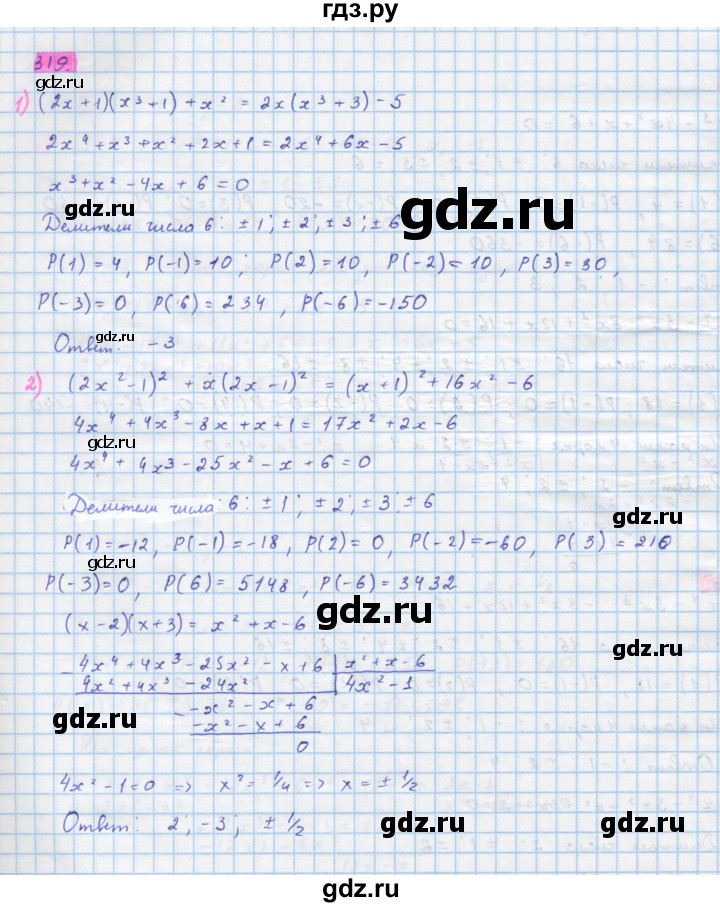 гдз.ру
319.
1) (2x+1)(x³+1)+x² = 2x(x³+3)-5
gdz.ru
2x⁴+x³+x²+2x+1 = 2x⁴+6x-5
gdz.ru
x³+x²-4x+6=0
Делители числа 6: ±1; ±2; ±3; ±6
gdz.ru
P(1)=4, P(-1)=10; P(2)=10, P(-2)=10, P(3)=30,
gdz.ru
P(-3)=0, P(6)=234, P(-6)=-150
gdz.ru
Ответ: -3
2) (2x²-1)²+x(2x-1)² = (x+1)²+16x²-6
gdz.ru
4x⁴+4x³-8x+x+1=17x²+2x-6
gdz.ru
4x⁴+4x3-25x²-x+6=0
Делители числа: 6: ±1; ±2; ±3; ±6
gdz.ru
P(1)=-12, P(-1)=-18, P(2)=0, P(-2)=-60, P(3)=216
gdz.ru
P(-3)=0, P(6)=5148, P(-6)=3432
gdz.ru
(x-2)(x+3)=x²+x-6
gdz.ru
4x⁴+4x³-25x²-x+6 | x²+x-6
4x²+4x³-24x² | 4x²-1
gdz.ru
-x²-x+6
-x²-x+6
0
4x²-1=0 => x²=1/4 => x=±1/2
Ответ: 2; -3; ±1/2
gdz.ru
gdz.ru
gdz.ru